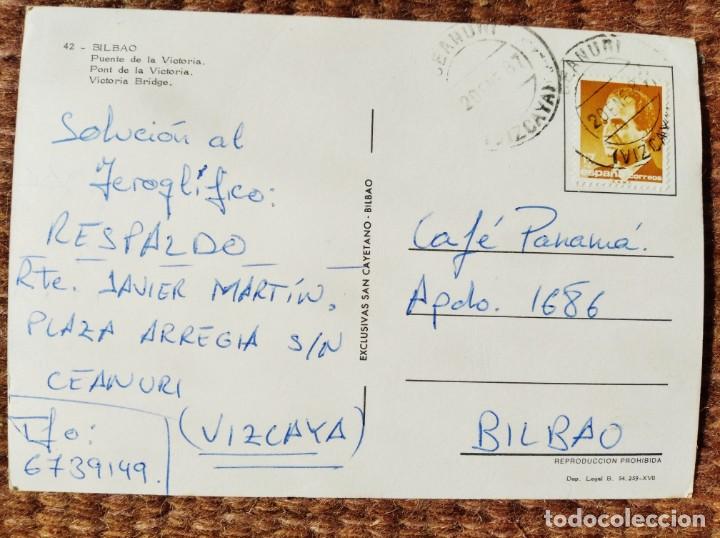 42 - BILBAO
Puente de la Victoria.
Pont de la Victoria.
Victoria Bridge.
Solución al
Jeroglífico:
RESPALDO
Rte. JAVIER MARTÍN.
PLAZA ARREGIA S/N
CEANURI
(VIZCAYA)
Tfo:
6739149.
EXCLUSIVAS SAN CAYETANO - BILBAO
CEANURI
(VIZCAYA)
CEANURI
(VIZCAYA)
españa correos
Café Panamá.
Apdo. 1686
BILBAO
REPRODUCCION PROHIBIDA
Dep. Legal B. 54.259-XVII
todocoleccion.net